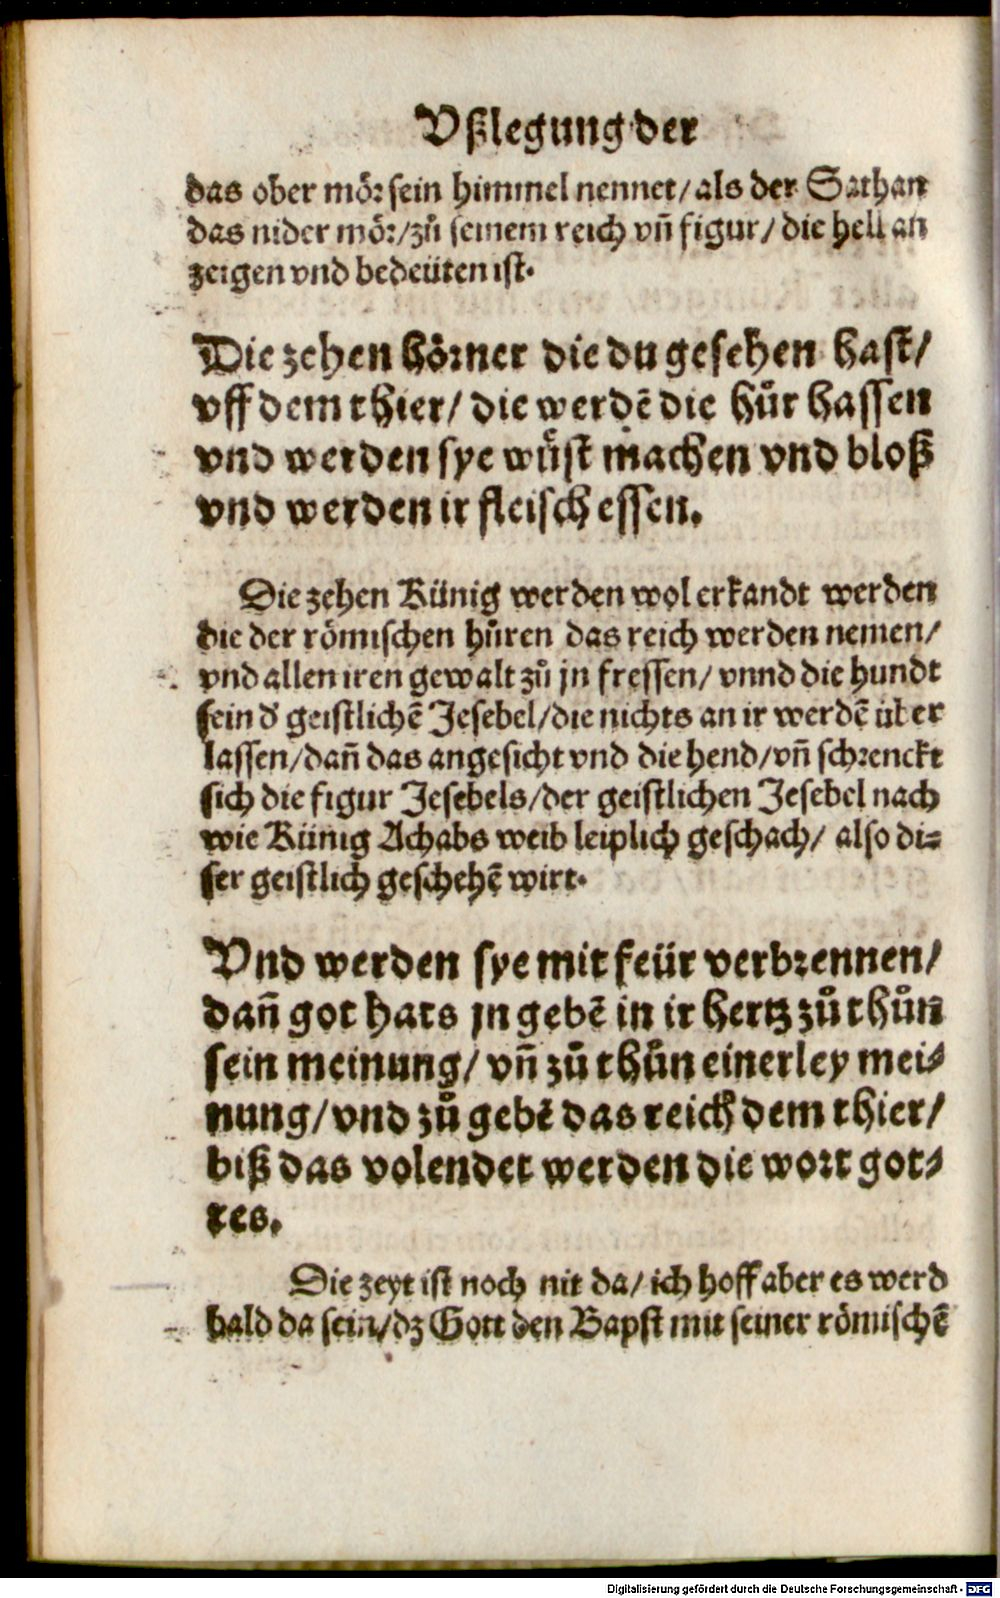 Vßlegung der
das ober mör sein himmel nennet/ als der Sathan
das nider mör/zů seinem reich vñ figur/ die hell an
zeigen vnd bedeüten ist.
Die zehen hörner die du gesehen hast/
vff dem thier/ die werdē die hůr hassen
vnd werden sye wůst machen vnd bloß
vnd werden ir fleisch essen.
Die zehen Künig werden wol erkandt werden
die der römischen hůren das reich werden nemen/
vnd allen iren gewalt zů jn fressen/ vnnd die hundt
sein d' geistlichē Jesebel/die nichts an ir werdē über
lassen/dañ das angesicht vnd die hend/vñ schrenckt
sich die figur Jesebels/der geistlichen Jesebel nach
wie Künig Achabs weib leiplich geschach/ also di⸗
ser geistlich geschehē wirt.
Vnd werden sye mit feür verbrennen/
dañ got hats jn gebē in ir hertz zů thůn
sein meinung/ vñ zů thůn einerley mei⸗
nung/vnd zů gebē das reich dem thier/
biß das volendet werden die wort got⸗
tes.
Die zeyt ist noch nit da/ ich hoff aber es werd
bald da sein/dz Gott den Bapst mit seiner römischē
Digitalisierung gefördert durch die Deutsche Forschungsgemeinschaft - DFG